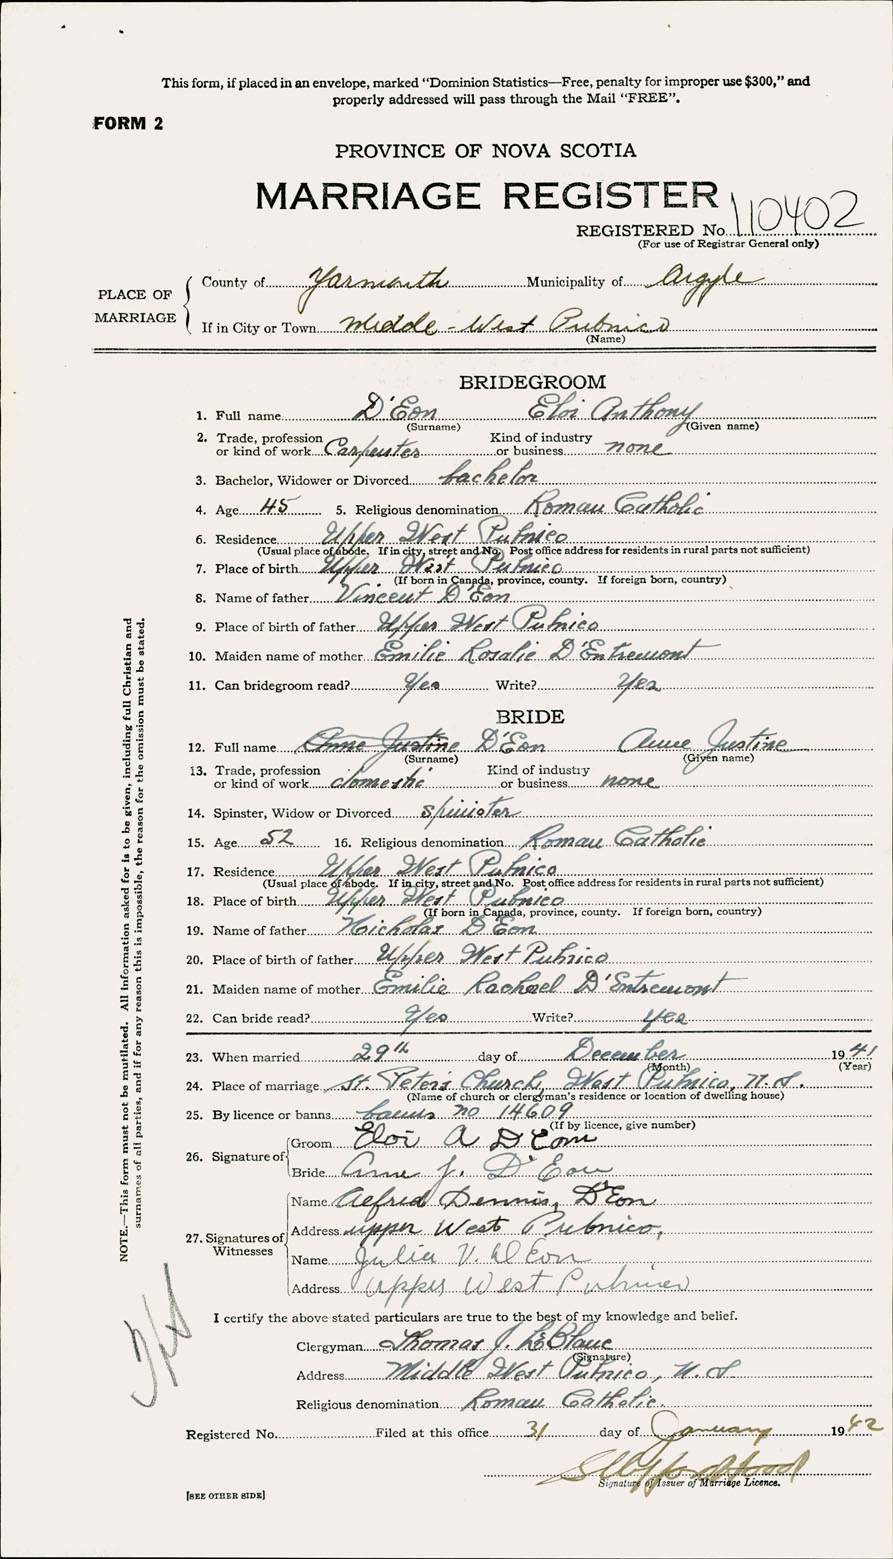 This form, if placed in an envelope, marked "Dominion Statistics—Free, penalty for improper use $300," and
properly addressed will pass through the Mail "FREE".
FORM 2
PROVINCE OF NOVA SCOTIA
MARRIAGE REGISTER
REGISTERED No. 110402
(For use of Registrar General only)
PLACE OF MARRIAGE
County of Yarmouth Municipality of Argyle
If in City or Town Middle-West Pubnico
(Name)
BRIDEGROOM
1. Full name D'Eon Eloi Anthony
(Surname) (Given name)
2. Trade, profession or kind of work Carpenter Kind of industry or business none
3. Bachelor, Widower or Divorced bachelor
4. Age 45 5. Religious denomination Roman Catholic
6. Residence Upper West Pubnico
(Usual place of abode. If in city, street and No. Post office address for residents in rural parts not sufficient)
7. Place of birth Upper West Pubnico
(If born in Canada, province, county. If foreign born, country)
8. Name of father Vincent D'Eon
9. Place of birth of father Upper West Pubnico
10. Maiden name of mother Emilie Rosalie D'Entremont
11. Can bridegroom read? Yes Write? Yes
BRIDE
12. Full name Anne Justine D'Eon Anne Justine
(Surname) (Given name)
13. Trade, profession or kind of work domestic Kind of industry or business none
14. Spinster, Widow or Divorced spinster
15. Age 52 16. Religious denomination Roman Catholic
17. Residence Upper West Pubnico
(Usual place of abode. If in city, street and No. Post office address for residents in rural parts not sufficient)
18. Place of birth Upper West Pubnico
(If born in Canada, province, county. If foreign born, country)
19. Name of father Nicholas D'Eon
20. Place of birth of father Upper West Pubnico
21. Maiden name of mother Emilie Rachael D'Entremont
22. Can bride read? Yes Write? yes
23. When married 29th day of December 1941
(Month) (Year)
24. Place of marriage St. Peter's Church, West Pubnico, N.S.
(Name of church or clergyman's residence or location of dwelling house)
25. By licence or banns banns no 14609
(If by licence, give number)
26. Signature of
Groom Eloi A D'Eon
Bride Anne J. D'Eon
27. Signatures of Witnesses
Name Alfred Dennis, D'Eon
Address upper West Pubnico,
Name Julia V. D'Eon
Address Upper West Pubnico
I certify the above stated particulars are true to the best of my knowledge and belief.
Clergyman Thomas J. LeBlanc
(Signature)
Address Middle West Pubnico, N.S.
Religious denomination Roman Catholic.
Registered No. Filed at this office 31 day of January 1942
Signature of Issuer of Marriage Licence.
[SEE OTHER SIDE]
NOTE.—This form must not be mutilated. All information asked for is to be given, including full Christian and
surnames of all parties, and if for any reason this is impossible, the reason for the omission must be stated.